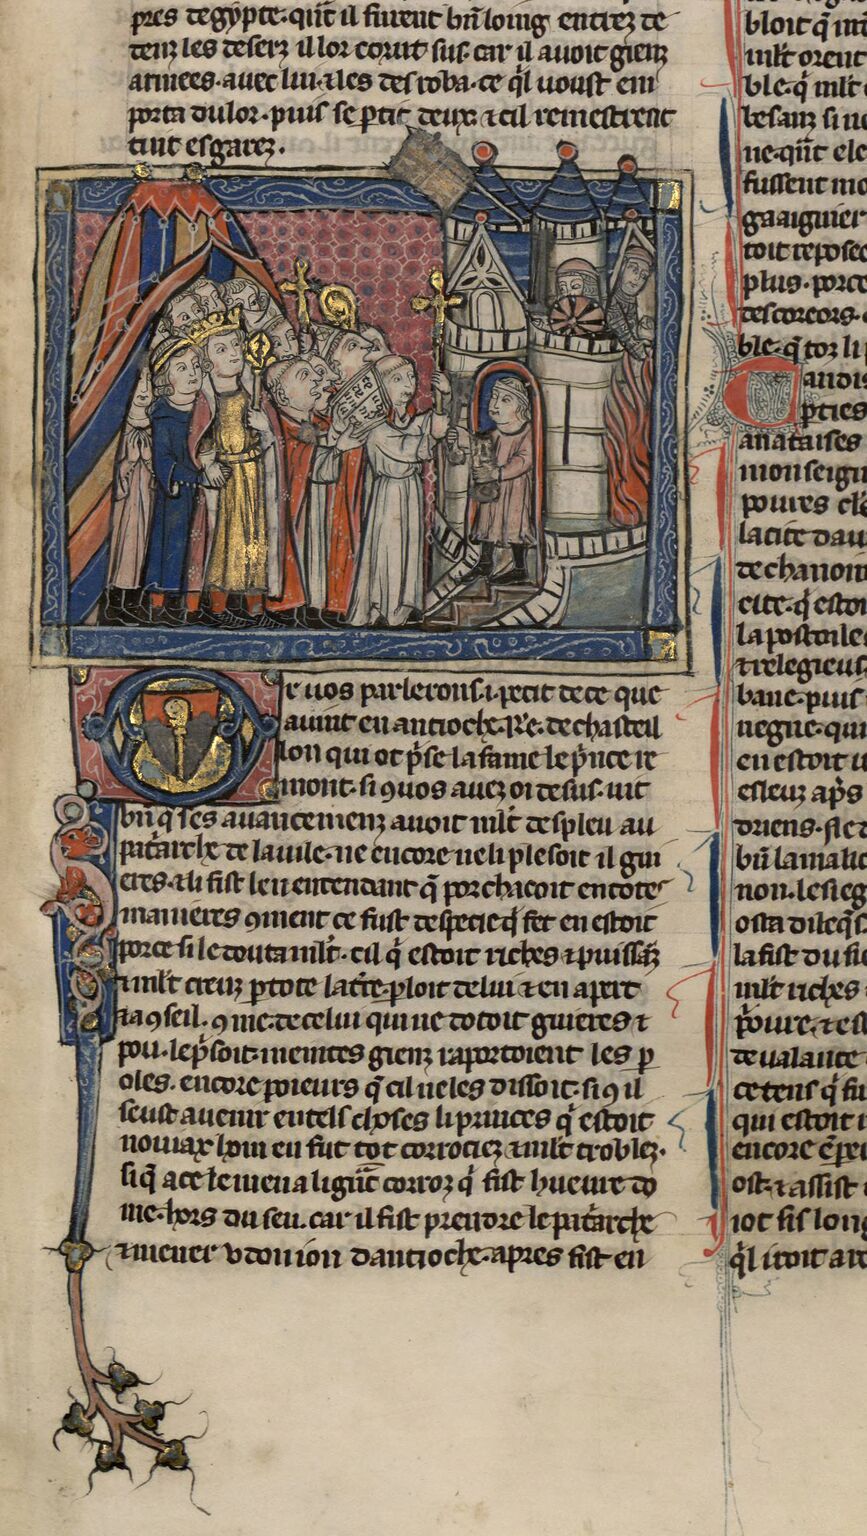 pres degypte. qnt il furent bn loing entrez de
denz les deserz il lor corut sus. car il avoit genz
armees. avec lui. ⁊ les desroba. ce ql voust em
porta du lor. puis se ptit deux. ⁊ cil remestrent
tuit esgarez.
r vos parlerons. i. petit de ce que
avint en antioche. Re. de chasteil
lon qui ot pse la fame le pnce re
mont. si 9 vos avez oi desus. vit
bn q ses avancemenz avoit mlt despleu au
patarche de la vile. ne encore ne li plesoit il gui
eres. ⁊ li fist len entendant q porchacoit en totes
manieres 9ment ce fust despecie q fet en estoit
porce si le douta mlt. cil q estoit riches ⁊ puissanz
⁊ mlt creuz p tote la terre ploit de lui ⁊ en apert
⁊ a 9seil. 9me de celui qui ne dotoit guieres ⁊
pou. le psoit. meintes genz raportoient les p
oles. encore poieurs q cil ne les dissoit. si 9 il
seust avenir en tels choses li princes q estoit
noviax hom en fut tot corrociez ⁊ mlt troblez.
si q a ce le mena li gnt corroz q fist huevre do
me. hors du sen. car il fist prendre le patarche
⁊ mener v donion dantioche. apres fist en
bloit q
mlt orent
ble. q mlt
besanz si ne
ne. qnt ele
fussent mo
gaaignier
toit repose
plus. porce
descoreors.
ble. q toz li
andis
pties
monseign
povres cle
la cite dau
de chanoin
cite. q estoi
la postoile
⁊ relegieus
bane. puis
negne. qui
en estoit
esleuz aps
driens. si e
bn la malic
non. le sieg
osta dileqs
la fist du
mlt riches
povre. ⁊ es
de valance
ce tens q fu
qui estoit
encore
ost. ⁊ assist
iot fis long
ql